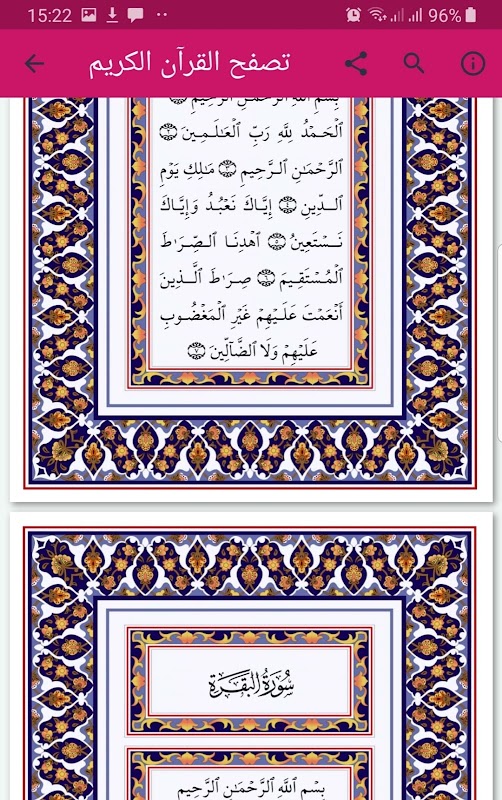 15:22 96%
تصفح القرآن الكريم
بِسْمِ ٱللَّهِ ٱلرَّحْمَٰنِ ٱلرَّحِيمِ ١
ٱلْحَمْدُ لِلَّهِ رَبِّ ٱلْعَٰلَمِينَ ٢
ٱلرَّحْمَٰنِ ٱلرَّحِيمِ ٣ مَٰلِكِ يَوْمِ
ٱلدِّينِ ٤ إِيَّاكَ نَعْبُدُ وَإِيَّاكَ
نَسْتَعِينُ ٥ ٱهْدِنَا ٱلصِّرَٰطَ
ٱلْمُسْتَقِيمَ ٦ صِرَٰطَ ٱلَّذِينَ
أَنْعَمْتَ عَلَيْهِمْ غَيْرِ ٱلْمَغْضُوبِ
عَلَيْهِمْ وَلَا ٱلضَّآلِّينَ ٧
سُورَةُ البَقَرَةِ
بِسْمِ ٱللَّهِ ٱلرَّحْمَٰنِ ٱلرَّحِيمِ